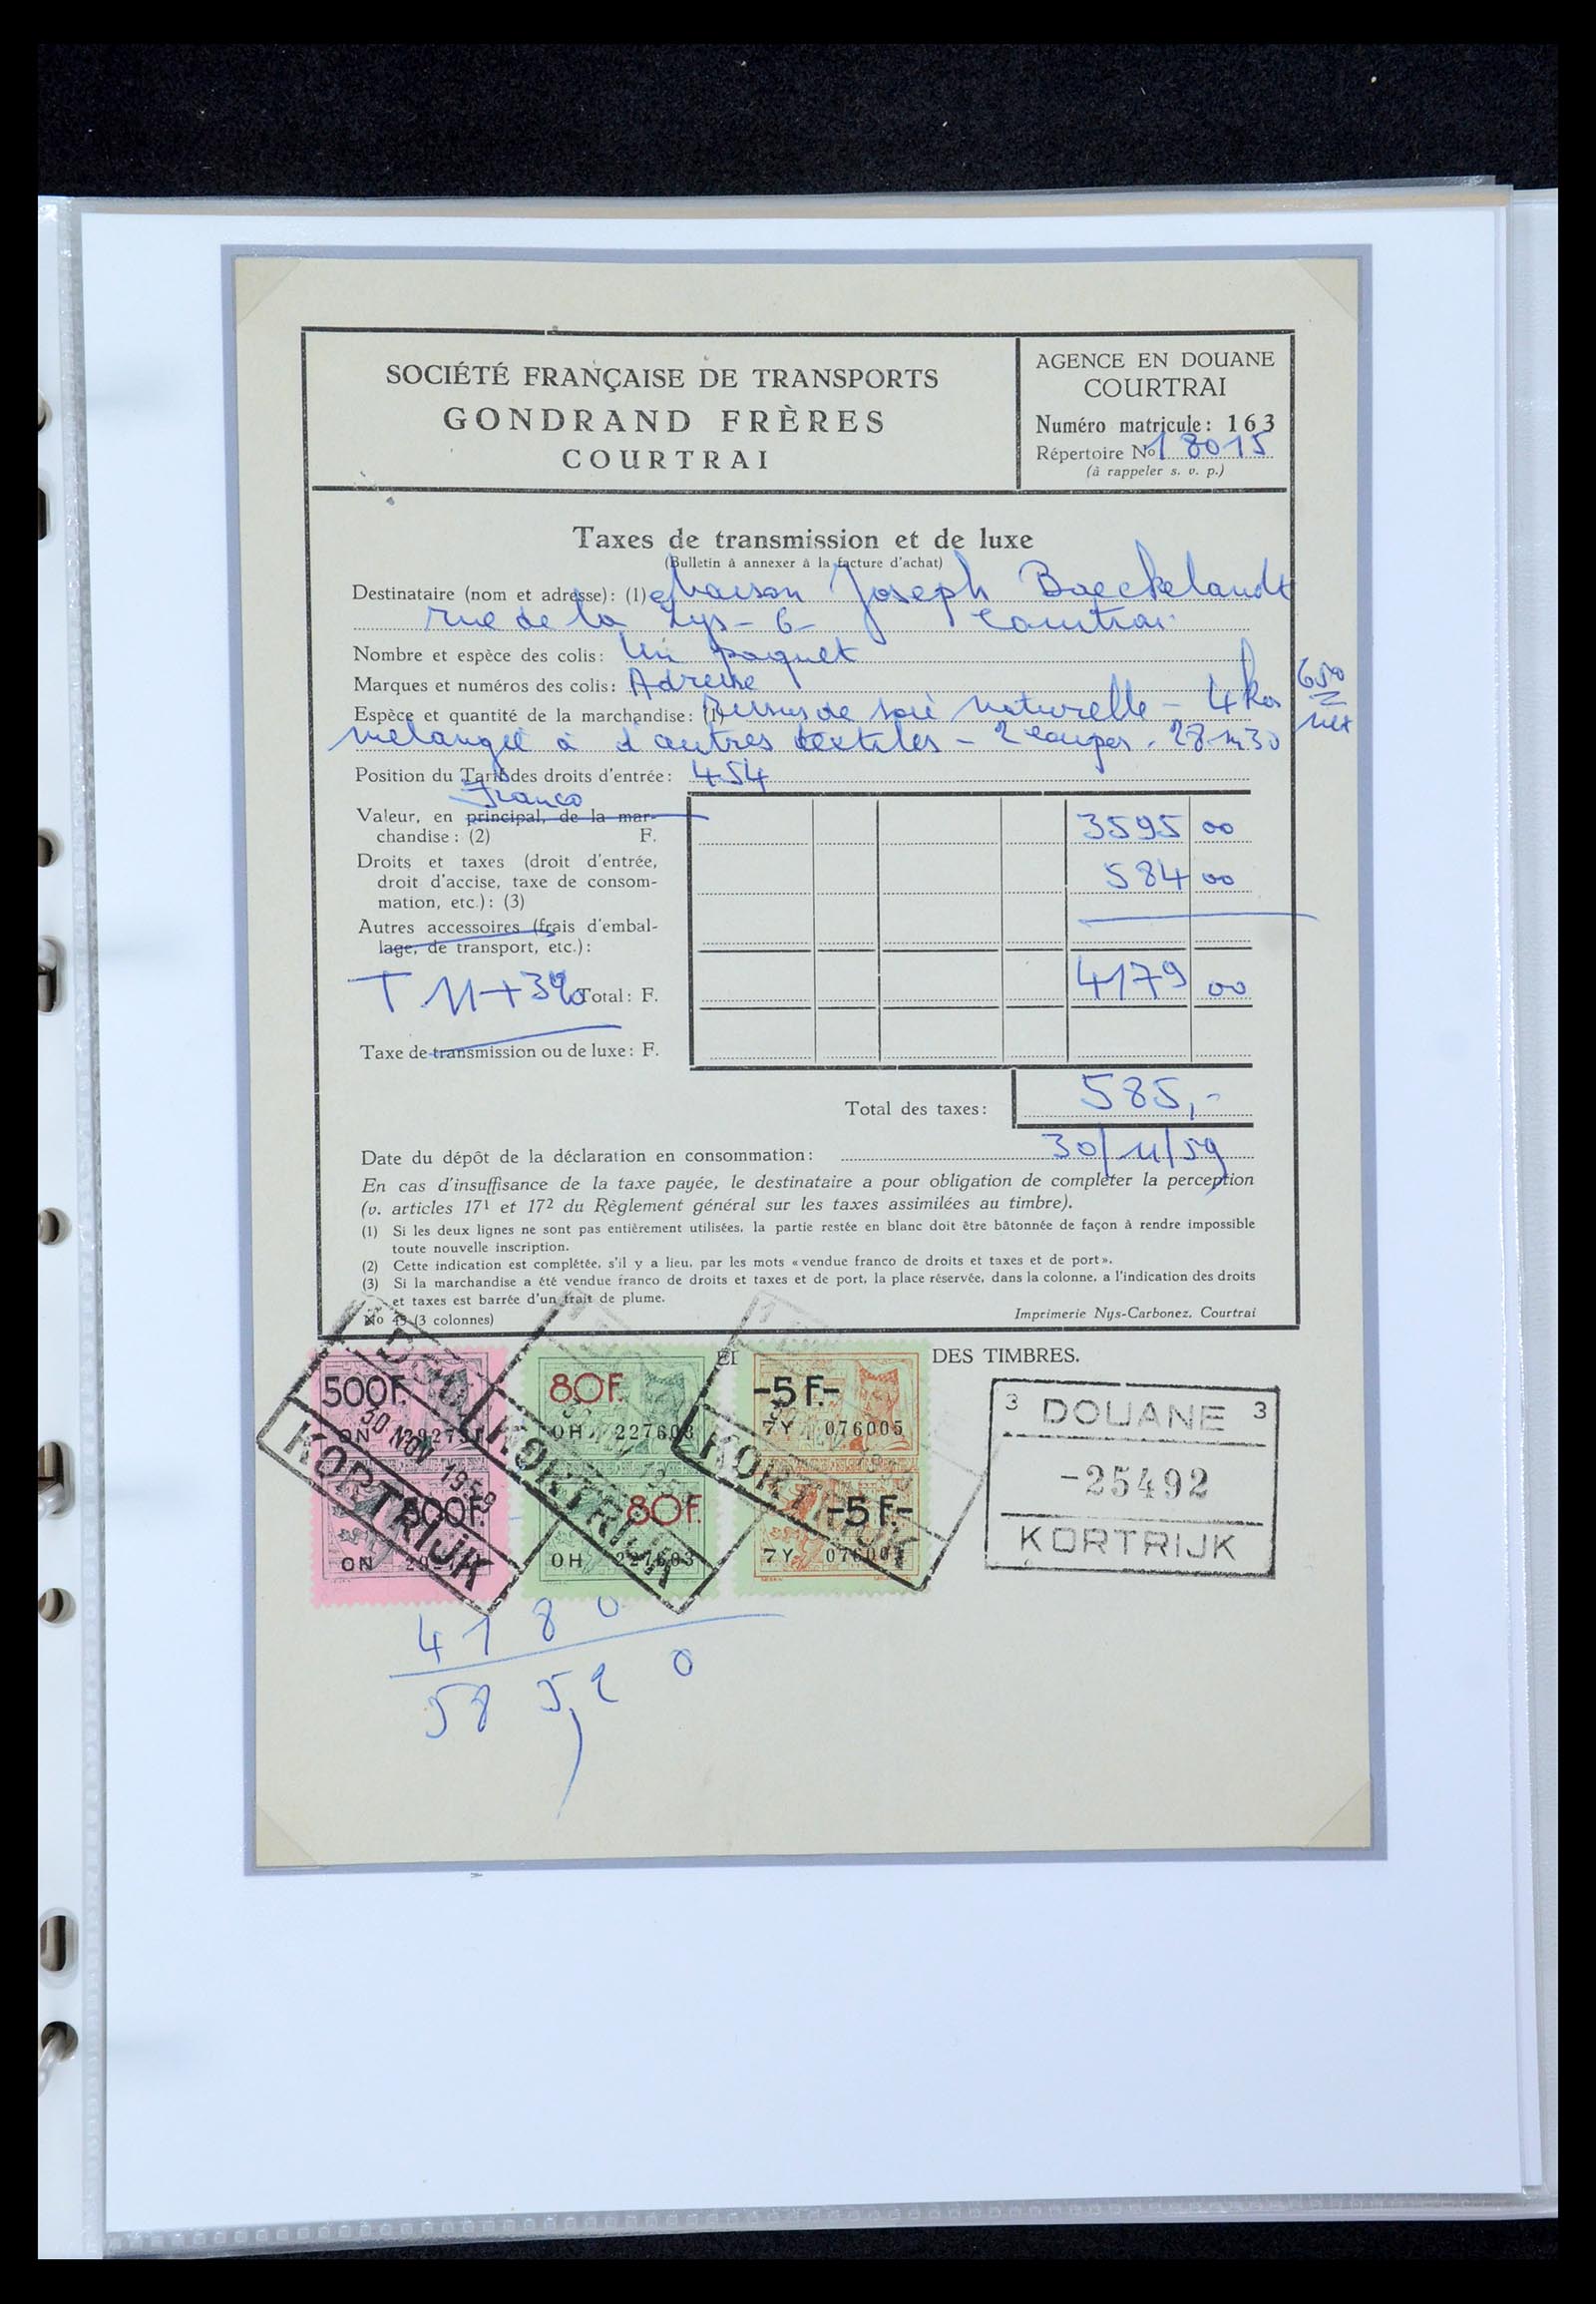 SOCIÉTÉ FRANÇAISE DE TRANSPORTS
GONDRAND FRÈRES
COURTRAI
AGENCE EN DOUANE
COURTRAI
Numéro matricule: 163
Répertoire No 18015
(à rappeler s. v. p.)
Taxes de transmission et de luxe
(Bulletin à annexer à la facture d'achat)
Destinataire (nom et adresse): (1) Maison Joseph Baeckelandt
rue de la Lys - 6 - Courtrai
Nombre et espèce des colis: Un paquet
Marques et numéros des colis: Adresse
Espèce et quantité de la marchandise: (1) Tissus de soie naturelle - 4 kos 650
net
mélangée à d'autres textiles - 2 coupes - 28 m 30
Position du Tarif des droits d'entrée: 454
franco
Valeur, en principal, de la mar-
chandise: (2) F. 3595 00
Droits et taxes (droit d'entrée,
droit d'accise, taxe de consom-
mation, etc.): (3) 584 00
Autres accessoires (frais d'embal-
lage, de transport, etc.):
T 11+3% Total: F. 4179 00
Taxe de transmission ou de luxe: F.
Total des taxes: 585,-
Date du dépôt de la déclaration en consommation: 30/11/59
En cas d'insuffisance de la taxe payée, le destinataire a pour obligation de compléter la perception
(v. articles 17¹ et 17² du Règlement général sur les taxes assimilées au timbre).
(1) Si les deux lignes ne sont pas entièrement utilisées, la partie restée en blanc doit être bâtonnée de façon à rendre impossible
toute nouvelle inscription.
(2) Cette indication est complétée, s'il y a lieu, par les mots «vendue franco de droits et taxes et de port».
(3) Si la marchandise a été vendue franco de droits et taxes et de port, la place réservée, dans la colonne, a l'indication des droits
et taxes est barrée d'un trait de plume.
No 43 (3 colonnes)
Imprimerie Nys-Carbonez, Courtrai
DES TIMBRES.
500F. 80F. -5F.-
ON OH 227603 7Y 076005
30 NOV 1959
KORTRIJK KORTRIJK KORTRIJK
500F. 80F. -5F.-
ON OH 227603 7Y
3 DOUANE 3
-25492
KORTRIJK
4180
585,20